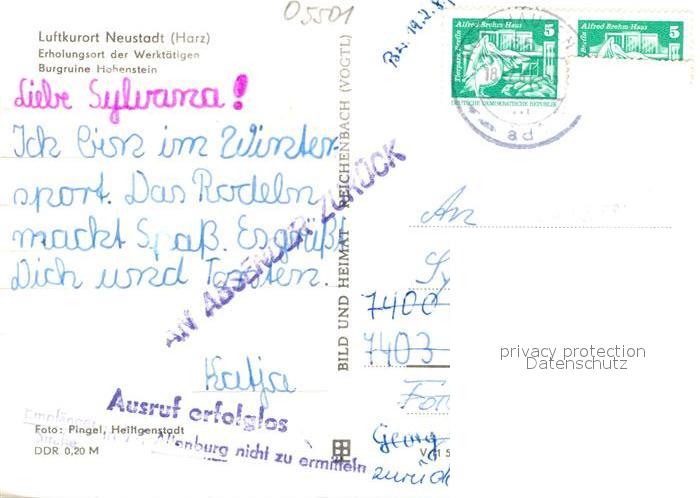 05501
Luftkurort Neustadt (Harz)
Erholungsort der Werktätigen
Burgruine Hohenstein
Liebe Sylvana!
Ich bin im Winter-
sport. Das Rodeln
macht Spaß. Es grüßt
Dich und Torsten.
Katja
AN ABSENDER ZURÜCK
Ausruf erfolglos
Empfänger
Altenburg nicht zu ermitteln
Foto: Pingel, Heiligenstadt
DDR 0,20 M
BILD UND HEIMAT REICHENBACH (VOGTL)
19.2.
Alfred-Brehm-Haus 5
Tierpark Berlin
DEUTSCHE DEMOKRATISCHE REPUBLIK
Alfred-Brehm-Haus 5
18
ad
An
Sy
7400
7403
Georg
zurück
privacy protection
Datenschutz